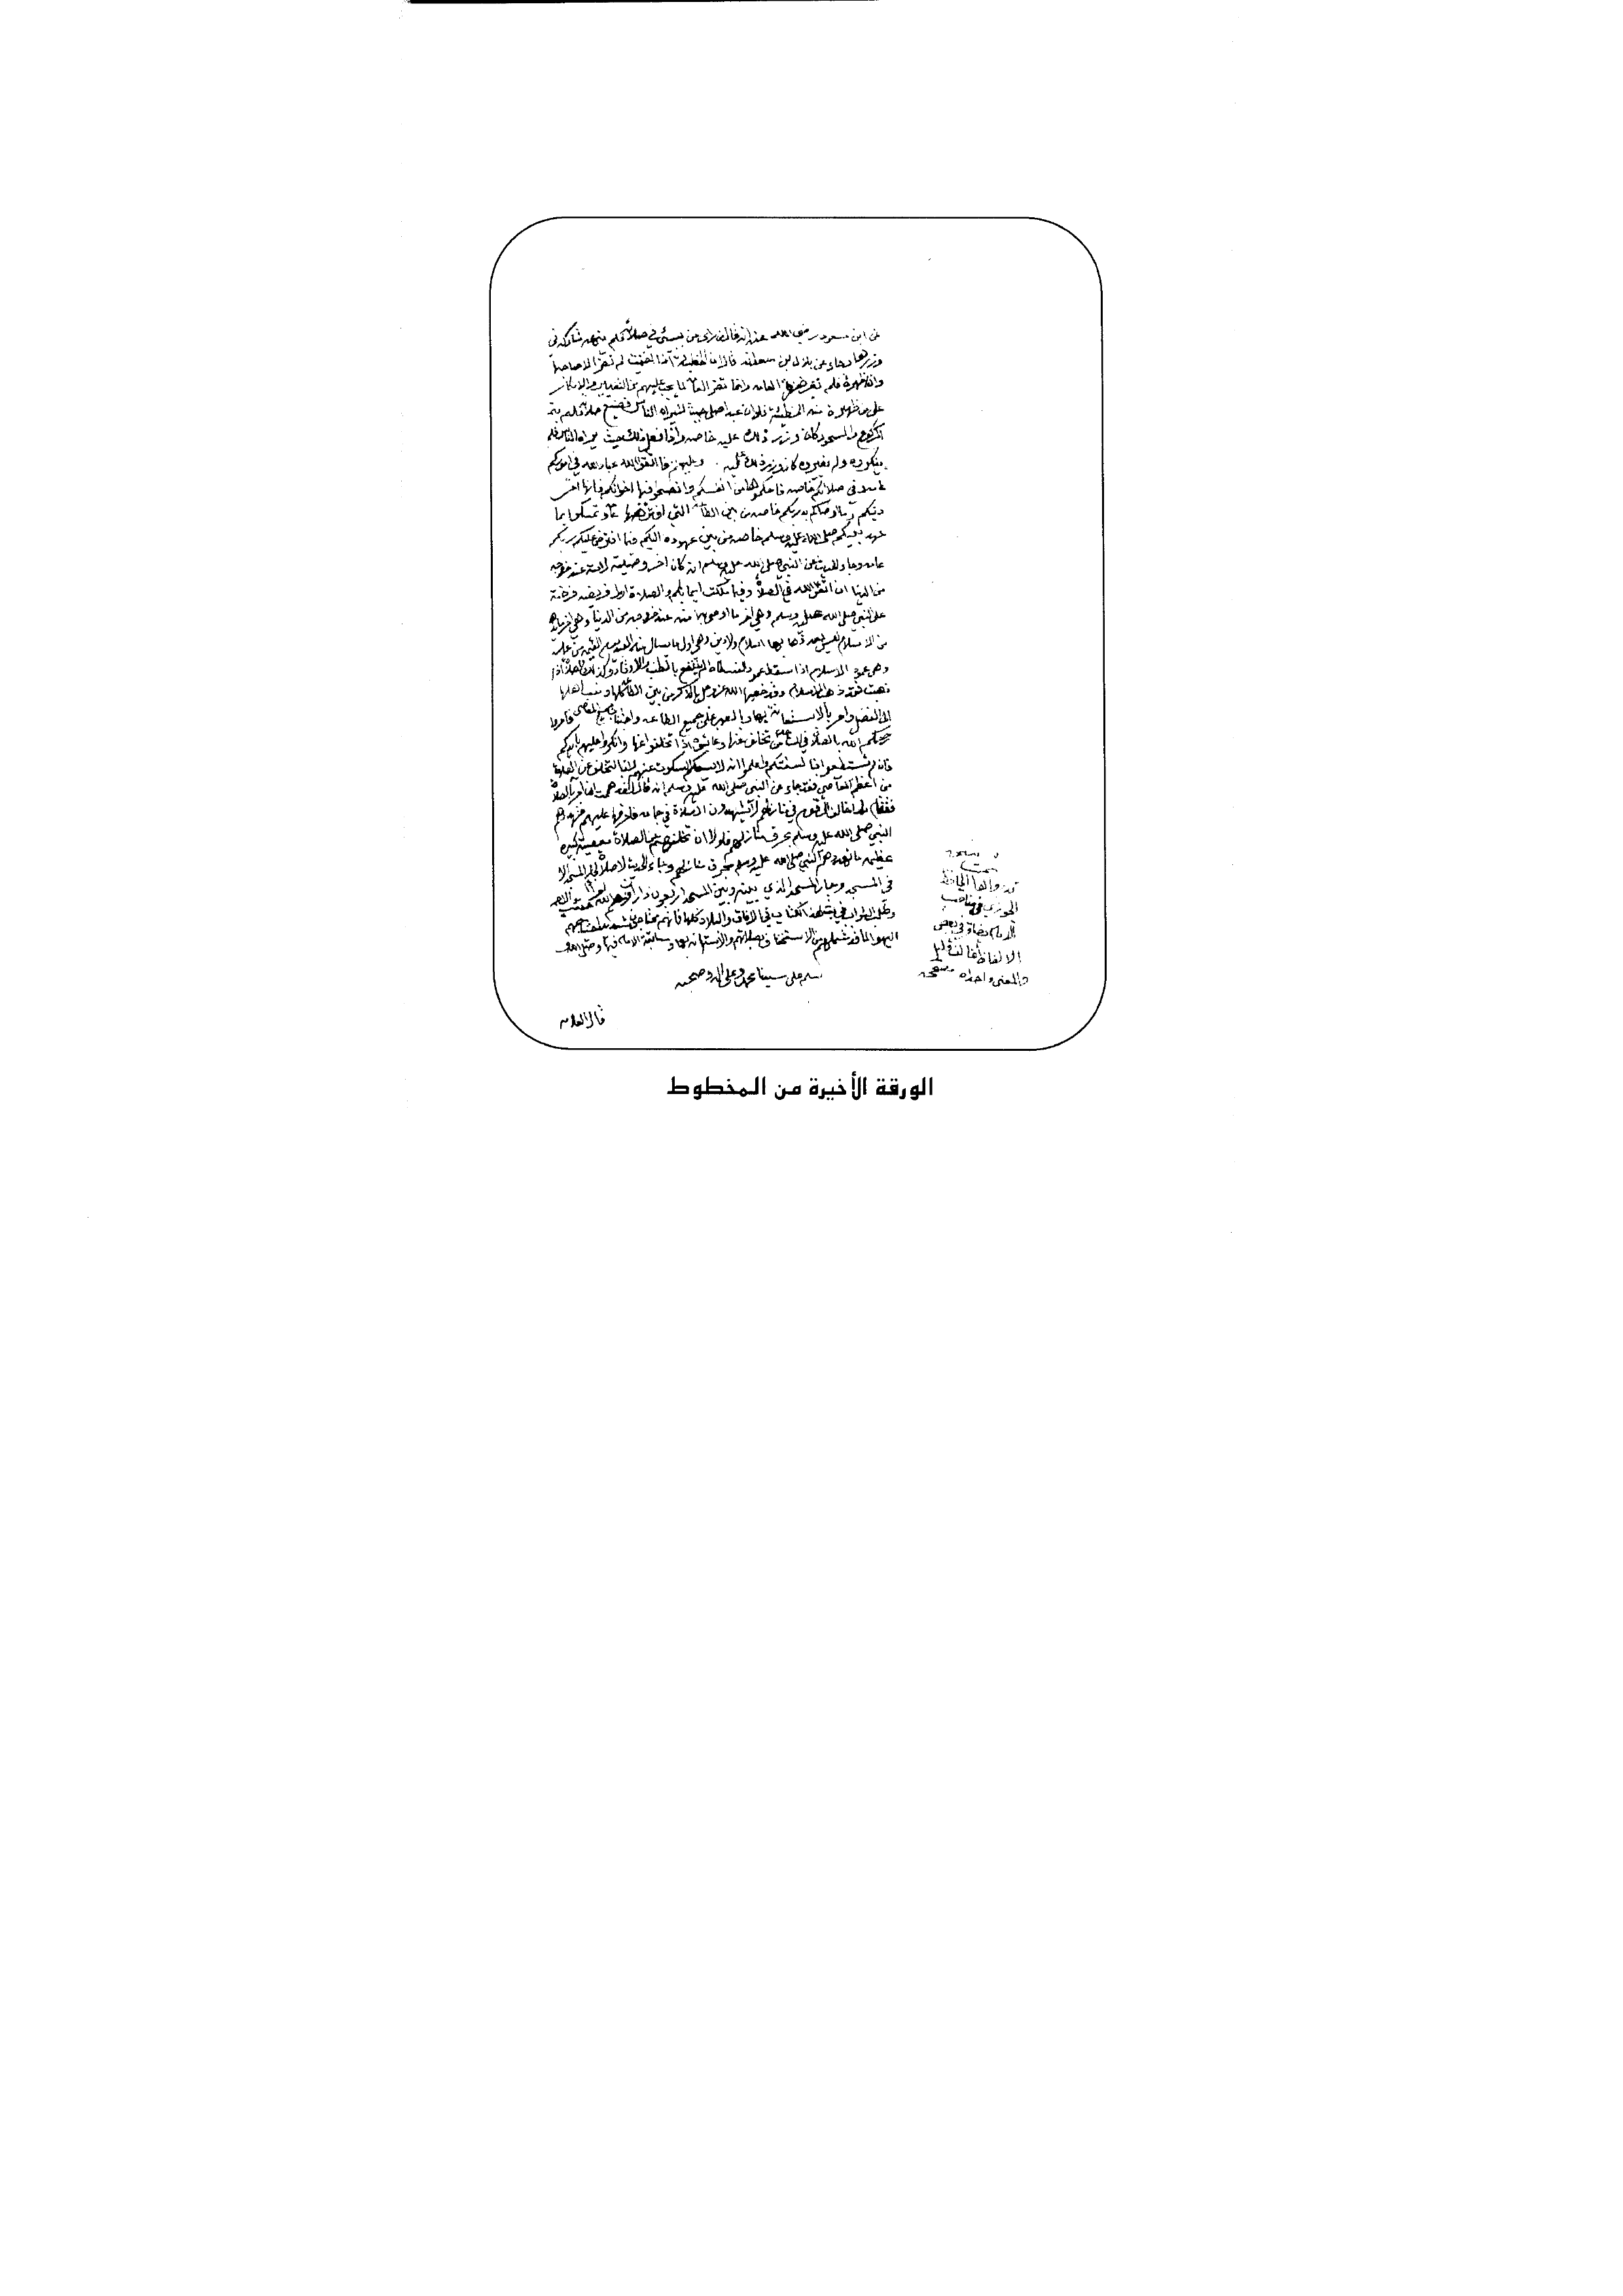 عن ابن مسعود رضي الله عنه انه قال من راى من يسئ في صلاته فلم ينهه شاركه في
وزرها وجاء عن بلال بن سعد انه قال ان الخطيئة اذا اخفيت لم تضر الا صاحبها
واذا ظهرت فلم تغير ضرت العامه وانما تضر العامة لما يجب عليهم من التغيير والانكار
على من ظهرت منه الخطيئة فلو ان عبدا صلى حيث لا يراه الناس فضيع صلاته فلم يتم
الركوع والسجود كان وزر ذلك عليه خاصه واذا فعل ذلك حيث يراه الناس فلم
ينكروه ولم يغيروه كان وزر ذلك عليه وعليهم فاتقوا الله عباد الله في اموركم
عامة وفي صلاتكم خاصه فاحكموها من انفسكم وانصحوا فيها اخوانكم فانها اخر
دينكم وما وصاكم به ربكم خاصه من بين الطاعة التي افترضها عامة وتمسكوا بما
عهد نبيكم صلى الله عليه وسلم خاصه من بين عهوده اليكم فيما افترض عليكم ربكم
عامه وجاء الحديث عن النبي صلى الله عليه وسلم انه كان اخر وصيته لامته عند خروجه
من الدنيا ان اتقوا الله في الصلاة وفيما ملكت ايمانكم والصلاة اول فريضه فرضت
على النبي صلى الله عليه وسلم وهي اخر ما اوصى بها امته عند خروجه من الدنيا وهي اخر ما يذهب
من الاسلام ليس بعد ذهابها اسلام ولا دين وهي اول ما يسال عنه العبد يوم القيمه من عمله
وهي عمود الاسلام اذا سقط عمود الفسطاط لم ينتفع بالطنب والاوتاد وكذلك الصلاة اذا
ذهبت فقد ذهب الاسلام وقد خصها الله عز وجل بالذكر من بين الطاعة كلها ونسب اهلها
الى الفضل وامر بالاستعانة بها وبالصبر على جميع الطاعه واجتناب جميع المعاصي فامروا
رحمكم الله بالصلاة في المساجد من تخلف عنها وعاتبوهم اذا تخلفوا عنها وانكروا عليهم بايديكم
فان لم تستطيعوا فبالسنتكم واعلموا انه لا يسعكم السكوت عنهم لان التخلف عن الصلاة
من اعظم المعاصي فقد جاء عن النبي صلى الله عليه وسلم انه قال لقد هممت ان امر بالصلاة
فتقام ثم اخالف الى قوم في منازلهم لا يشهدون الصلاة في جماعه فاحرقها عليهم فهددهم
النبي صلى الله عليه وسلم بحرق منازلهم فلولا ان تخلفهم عن الصلاة معصية كبيرة
عظيمه ما تهددهم النبي صلى الله عليه وسلم بحرق منازلهم وجاء الحديث لا صلاة لجار المسجد الا
في المسجد وجار المسجد الذي بينه وبين المسجد اربعون دارا
وطلب الثواب في بث هذا الكتاب في الافاق والبلاد كلها فانهم محتاجون
اليه لما قد شملهم من الاستخفاف بصلاتهم والاستهانه بها ومسابقة الامام فيها وصلى الله
وسلم على سيدنا محمد وعلى اله وصحبه
قال العلامه
قد رواها الحافظ
الجوزي في مناقب
الامام
الالفاظ
والمعنى واحد
الورقة الأخيرة من المخطوط